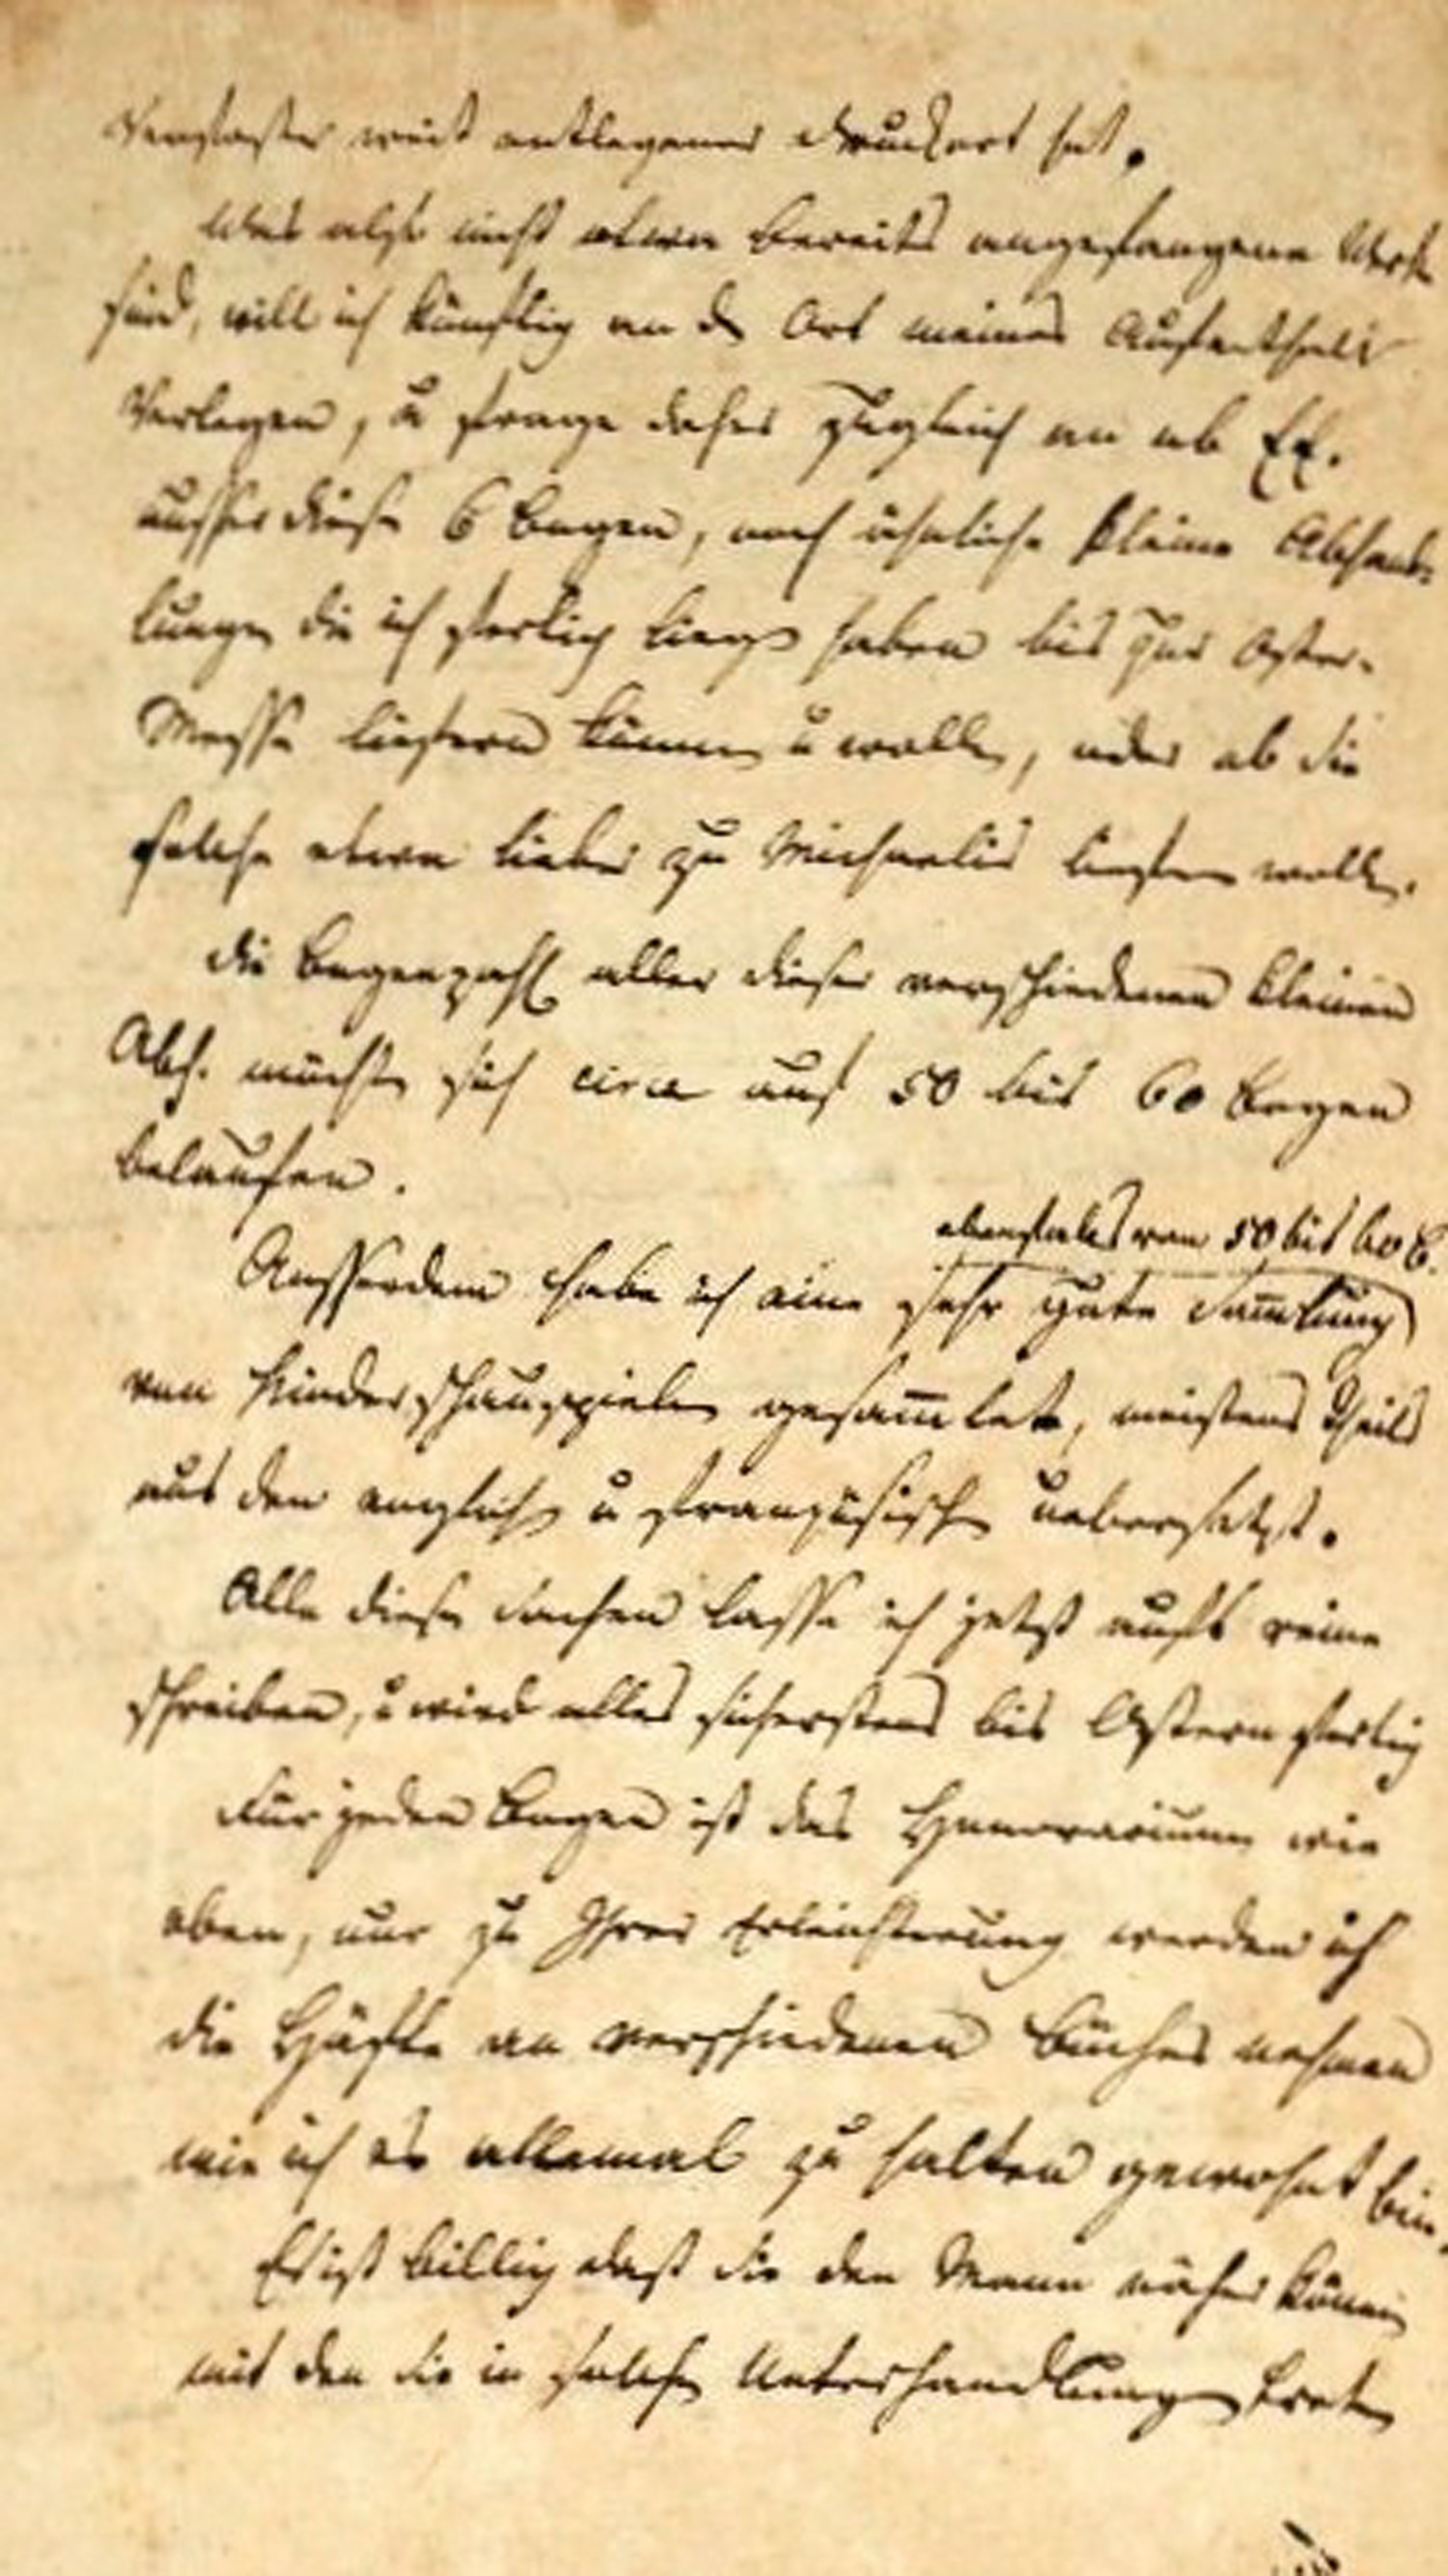 Verfasser weit entlegenen Druckort hat.
Was also nicht etwa bereits angefangene Werke
sind, will ich künftig an dem Ort meines Aufenthalts
Verlegen, u frage daher zugleich an ob
ausser diese 6 Bogen, noch ähnliche kleine Abhand-
lungen die ich fertig liegen haben bis zur Oster-
Messe liefern können u wollen, oder ob Sie
solche etwa lieber zu Michaelis liefern wollen.
Die Bogenzahl aller dieser verschiedenen kleinen
Abh. möchte sich circa auf 50 bis 60 Bogen
belaufen.
ebenfals von 50 bis 60 B.
Ausserdem habe ich eine sehr gute Sam̅lung
von Kinderschauspielen gesam̅let, meistens Theils
aus den englischen u französischen uebersetzt.
Alle diese Sachen lasse ich jetzt aufs reine
schreiben, u wird alles sicherstens bis Ostern fertig
Für jeden Bogen ist das Honorarium wie
oben, nur zu Ihrer Erleichterung werden ich
die Hälfte an verschiedenen Bücher nehmen
wie ich es allemal zu halten gewohnt bin.
Es ist billig dass Sie den Mann näher kennen
mit den Sie in solche Unterhandlungen treten